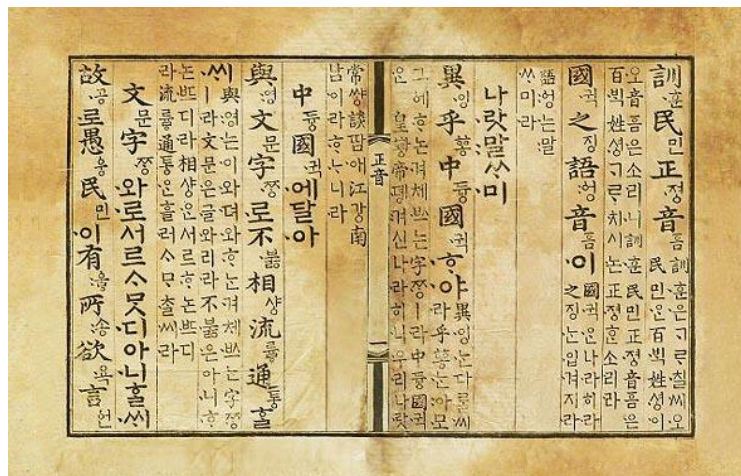 訓훈民민正졍音ᅙᅳᆷ
訓훈은ᄀᆞᄅᆞ칠씨오
民민ᄋᆞᆫ百ᄇᆡᆨ姓셩이
오音ᅙᅳᆷ은소리니訓훈民민正졍音ᅙᅳᆷ은
百ᄇᆡᆨ姓셩ᄀᆞᄅᆞ치시논正졍ᄒᆞᆫ소리라
國귁之징語ᅌᅥᆼ音ᅙᅳᆷ이
國귁ᄋᆞᆫ나라히라
之징ᄂᆞᆫ입겨지라
語ᅌᅥᆼ는말
ᄊᆞ미라
나랏말ᄊᆞ미
異잉乎ᅘᅩᆼ中듀ᇰ國귁ᄒᆞ야
異잉ᄂᆞᆫ다ᄅᆞᆯ씨
라乎ᅘᅩᆼᄂᆞᆫ아모
그ᅌᅦᄒᆞ논겨체ᄡᅳ는字ᄍᆞᆼㅣ라中듀ᇰ國귁
ᄋᆞᆫ皇ᅘᅪᇰ帝뎽겨신나라히니우리나랏
正音
一
常쌰ᇰ談땀애江가ᇰ南
남이라ᄒᆞᄂᆞ니라
中듀ᇰ國귁에달아
與영文문字ᄍᆞᆼ로不부ᇙ相샤ᇰ流류ᇢ通토ᇰᄒᆞᆯ
ᄊᆡ
與영는이와뎌와ᄒᆞ논겨체ᄡᅳ는字ᄍᆞᆼ
ㅣ라文문은글와리라不부ᇙ은아니ᄒᆞ
논ᄠᅳ디라相샤ᇰᄋᆞᆫ서르ᄒᆞ논ᄠᅳ디
라流류ᇢ通토ᇰᄋᆞᆫ흘러ᄉᆞᄆᆞᄎᆞᆯ씨라
文문字ᄍᆞᆼ와로서르ᄉᆞᄆᆞᆺ디아니ᄒᆞᆯᄊᆡ
故공로愚ᅌᅮᆼ民민이有우ᇢ所송欲욕言언